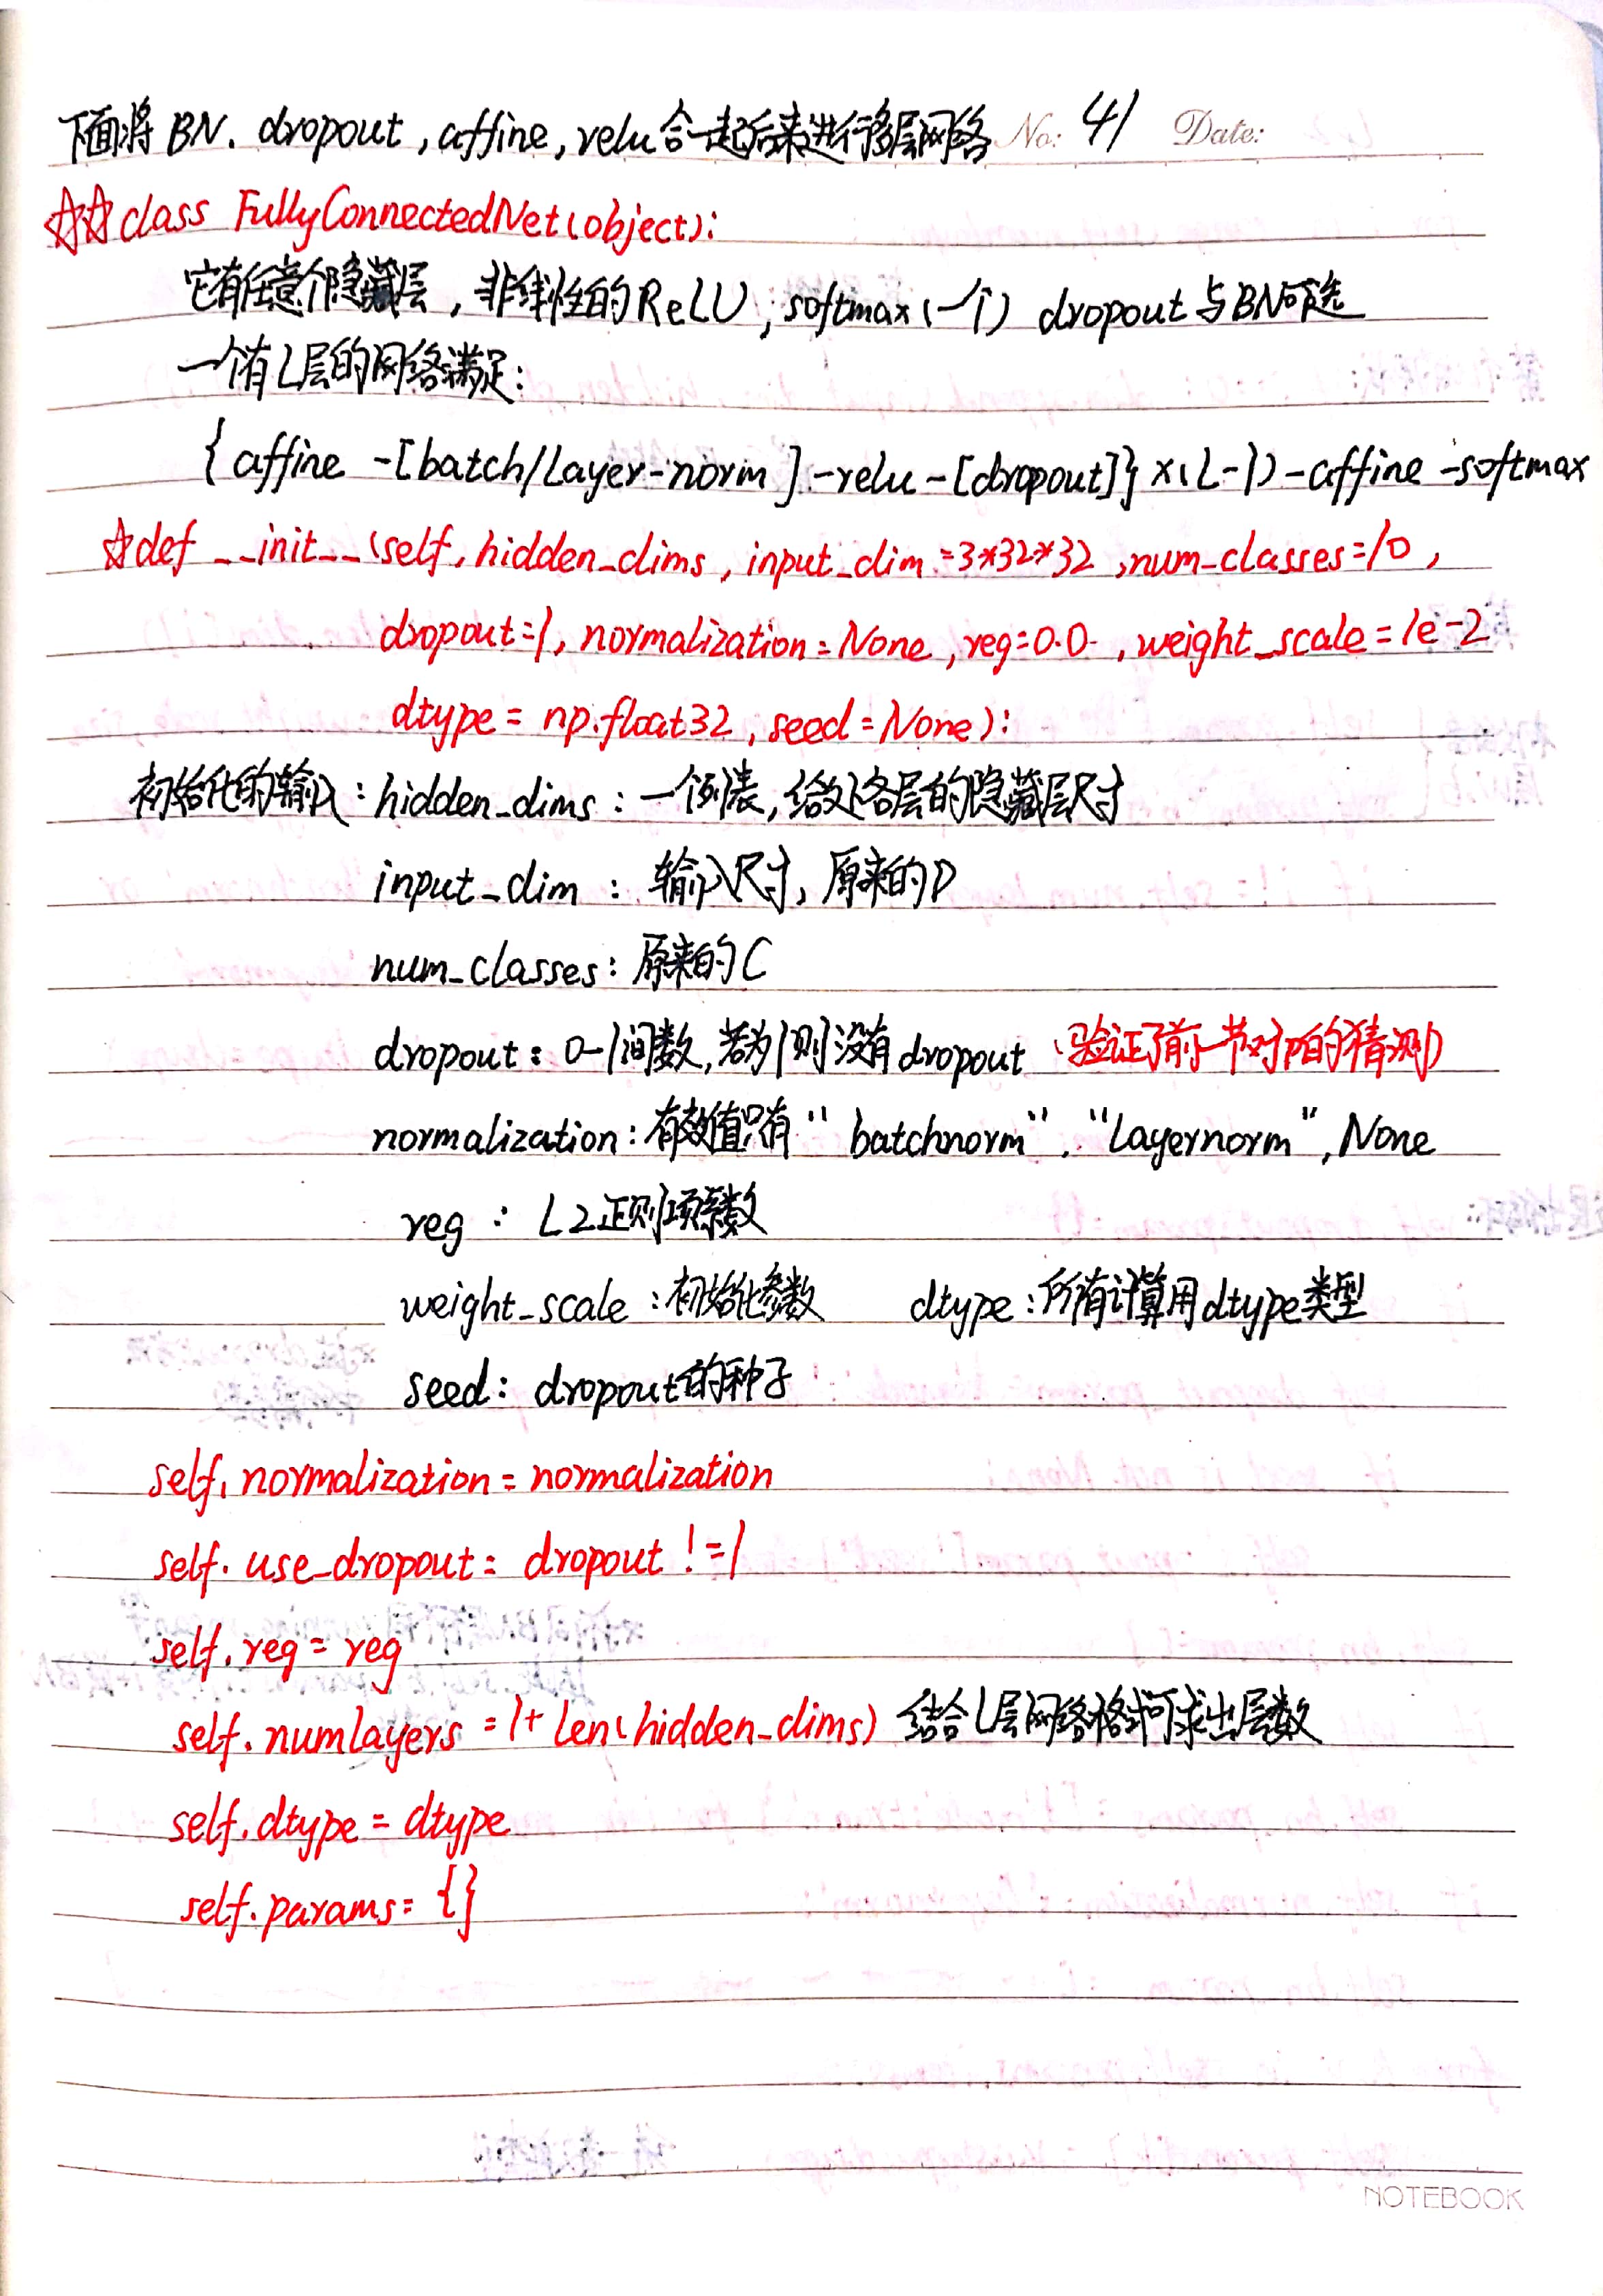 下面将 BN. dropout, affine, relu 合一起后来进行多层网络 No: 41 Date:
☆☆class FullyConnectedNet(object):
它有任意个隐藏层, 非线性的ReLU, softmax(一个) dropout与BN可选
一个有L层的网络满足:
{affine -[batch/Layer-norm]-relu-[dropout]}×(L-1)-affine-softmax
☆def __init__(self, hidden_dims, input_dim=3*32*32, num_classes=10,
dropout=1, normalization=None, reg=0.0, weight_scale=1e-2
dtype = np.float32, seed=None):
初始化的输入: hidden_dims: 一个列表, 给好各层的隐藏层尺寸
input_dim: 输入尺寸, 原来的D
num_classes: 原来的C
dropout: 0-1间数, 若为1则没有dropout (验证了前一节对p的猜测)
normalization: 有效值只有“batchnorm”. “Layernorm”, None
reg: L2正则项系数
weight_scale: 初始化参数 dtype: 所有计算用dtype类型
seed: dropout的种子
self.normalization = normalization
self.use_dropout = dropout != 1
self.reg = reg
self.numlayers = 1+ len(hidden_dims) 结合L层网络格式可求出层数
self.dtype = dtype
self.params = {}
NOTEBOOK